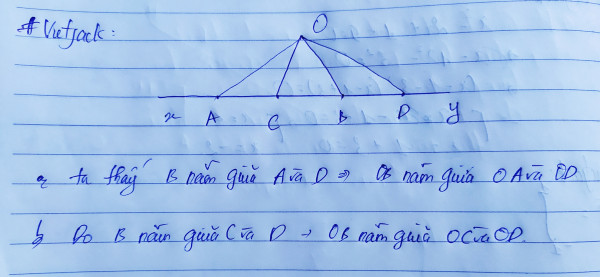 # Vietjack:
O
x A C B D y
a, ta thấy B nằm giữa A và D => OB nằm giữa OA và OD
b, Do B nằm giữa C và D → OB nằm giữa OC và OD.